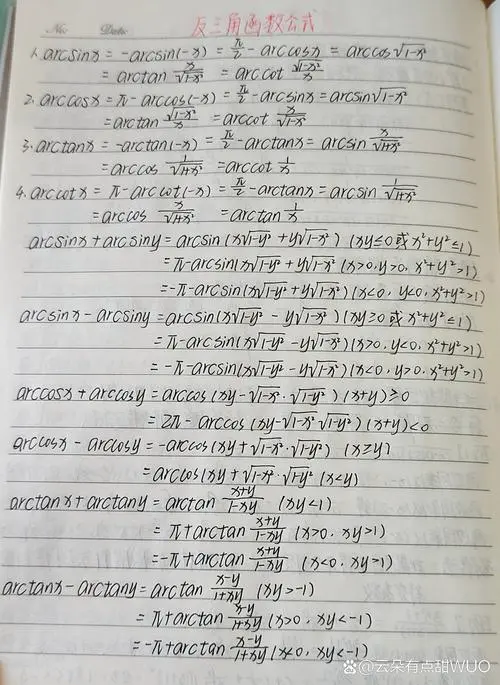 No: Date: 反三角函数公式
1. arcsinx = -arcsin(-x) = π/2 - arccosx = arccos√(1-x²)
= arctan x/√(1-x²) = arccot √(1-x²)/x
2. arccosx = π - arccos(-x) = π/2 - arcsinx = arcsin√(1-x²)
= arctan √(1-x²)/x = arccot x/√(1-x²)
3. arctanx = -arctan(-x) = π/2 - arctanx = arcsin x/√(1+x²)
= arccos 1/√(1+x²) = arccot 1/x
4. arccotx = π - arccot(-x) = π/2 - arctanx = arcsin 1/√(1+x²)
= arccos x/√(1+x²) = arctan 1/x
arcsinx + arcsiny = arcsin(x√(1-y²) + y√(1-x²)) (xy≤0或x²+y²≤1)
= π - arcsin(x√(1-y²) + y√(1-x²)) (x>0, y>0, x²+y²>1)
= -π - arcsin(x√(1-y²) + y√(1-x²)) (x<0, y<0, x²+y²>1)
arcsinx - arcsiny = arcsin(x√(1-y²) - y√(1-x²)) (xy≥0或x²+y²≤1)
= π - arcsin(x√(1-y²) - y√(1-x²)) (x>0, y<0, x²+y²>1)
= -π - arcsin(x√(1-y²) - y√(1-x²)) (x<0, y>0, x²+y²>1)
arccosx + arccosy = arccos(xy - √(1-x²)·√(1-y²)) (x+y)≥0
= 2π - arccos(xy - √(1-x²)√(1-y²)) (x+y)<0
arccosx - arccosy = -arccos(xy + √(1-x²)·√(1-y²)) (x≥y)
= arccos(xy + √(1-x²)·√(1-y²) (x<y)
arctanx + arctany = arctan (x+y)/(1-xy) (xy<1)
= π + arctan (x+y)/(1-xy) (x>0, xy>1)
= -π + arctan (x+y)/(1-xy) (x<0, xy>1)
arctanx - arctany = arctan (x-y)/(1+xy) (xy>-1)
= π + arctan (x-y)/(1+xy) (x>0, xy<-1)
= -π + arctan (x-y)/(1+xy) (x<0, xy<-1)
@云朵有点甜WUO